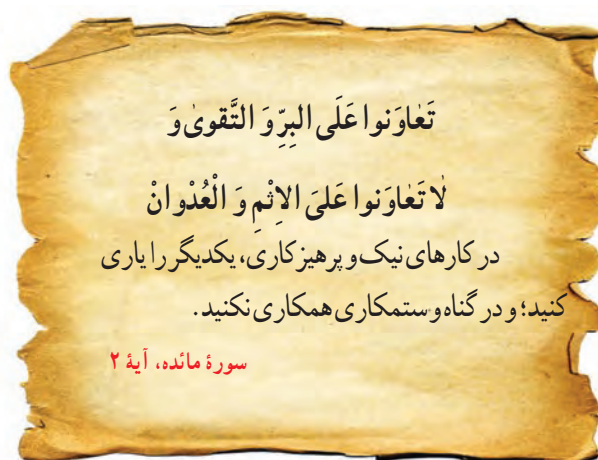 تَعٰاوَنوا عَلَی البِرِّ وَ التَّقویٰ وَ
لاٰ تَعٰاوَنوا عَلیَ الاِثْمِ وَ الْعُدْوانْ
در کارهای نیک و پرهیزکاری، یکدیگر را یاری
کنید؛ و در گناه و ستمکاری همکاری نکنید.
سورۀ مائده، آیۀ ۲